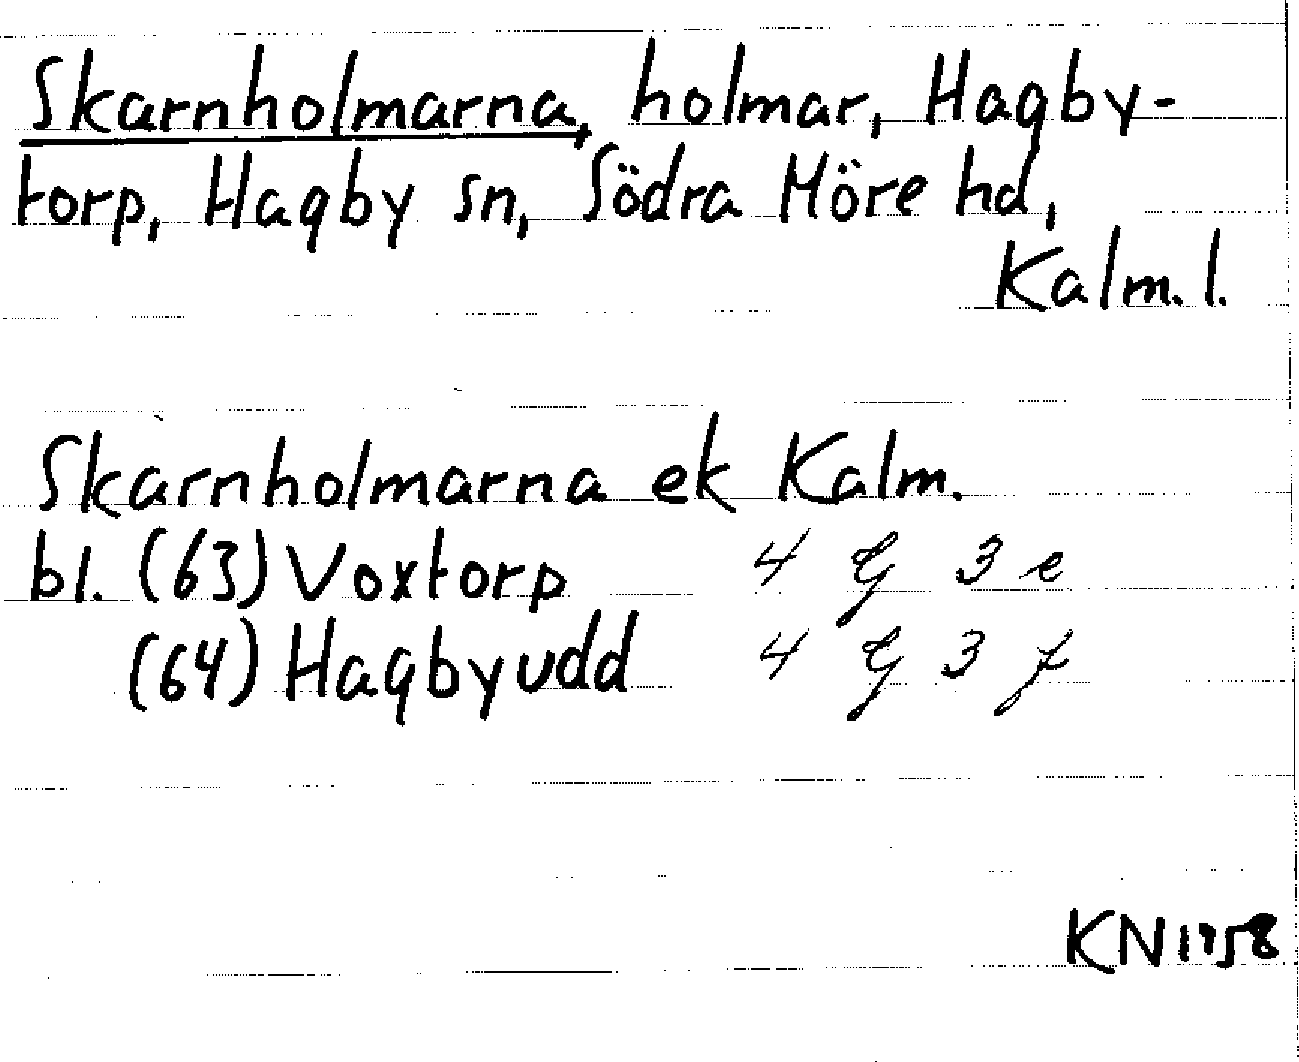 Skarnholmarna, holmar, Hagby-
torp, Hagby sn, Södra Möre hd,
Kalm. l.
Skarnholmarna ek Kalm.
bl. (63) Voxtorp 4 G 3 e
(64) Hagbyudd 4 G 3 f
KN 1958